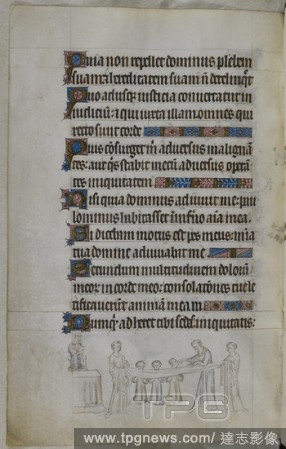 Quia non repellet dominus plebem
suam: et hereditatem suam non derelinqet
Quo adusqe iusticia convertatur in
iudicium: et qui iuxta illam omnes qui
recto sunt corde
Quis consurget michi adversus malignan
tes: aut quis stabit mecum adversus operan
tes iniquitatem
Nisi quia dominus adiuvit me: pau
lominus habitasset in inferno anima mea
Si dicebam motus est pes meus: mi
dia tua domine adiuvabat me
Secundum multitudinem dolorum
meorum in corde meo: consolationes tue le
tificaverunt animam meam
Numquid adheret tibi sedes iniquitatis:
TPG
www.tpgnews.com / 達志影像